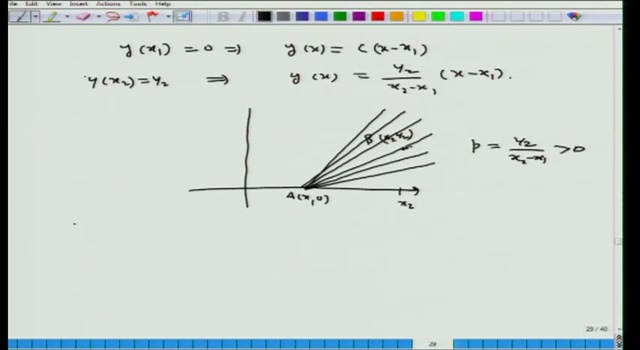 File View Insert Actions Tools Help
y(x₁) = 0 ⇒ y(x) = C(x-x₁)
y(x₂)=y₂ ⇒ y(x) = y₂/(x₂-x₁) (x-x₁).
B(x₂,y₂)
p = y₂/(x₂-x₁) > 0
A(x₁,0)
x₂
29 / 40
29